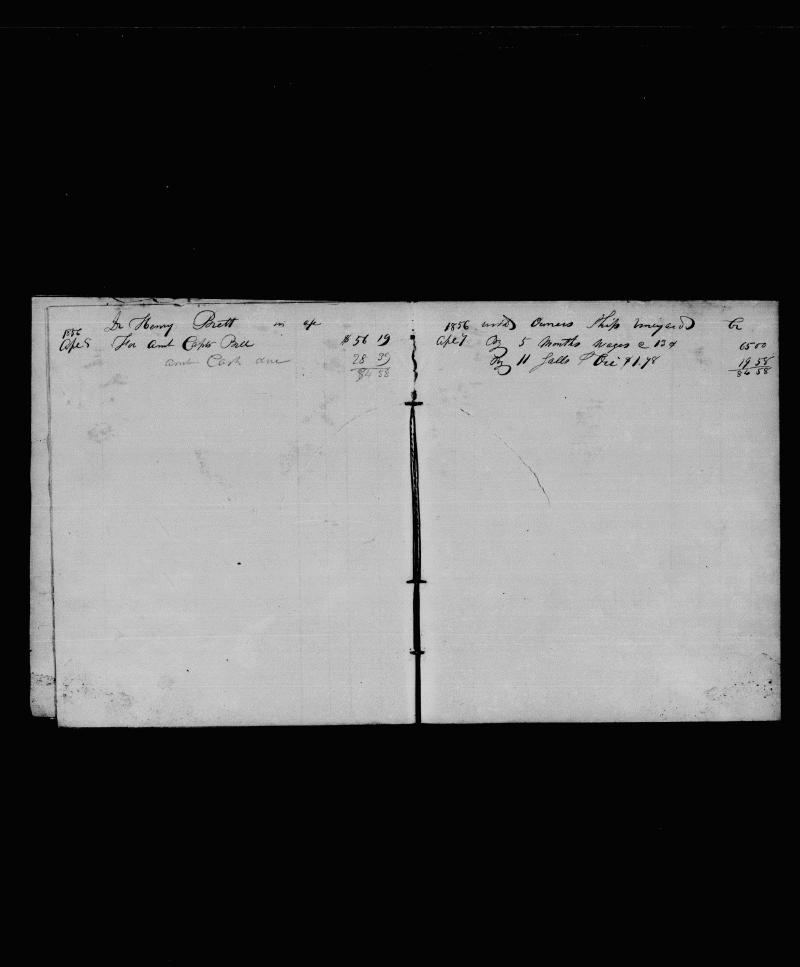 Dr Henry Brett in a/c
1856
Apl 8 For amt Capts Bill $56 19
amt Cash due 28 39
84 58
1856 with Owners Ship Vineyard Cr
Apl 7 By 5 Months Wages @ 13$ 65 00
By 11 Galls Oil $1.78 19 58
84 58